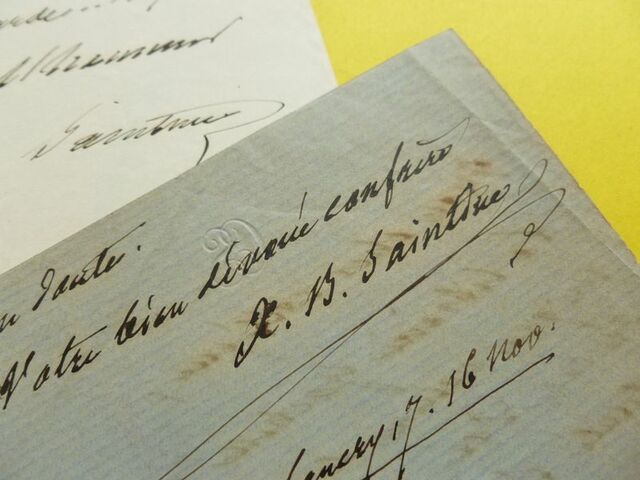 Saintine
doute.
Votre bien dévoué confrère
X. B. Saintine
17. 16 Nov.